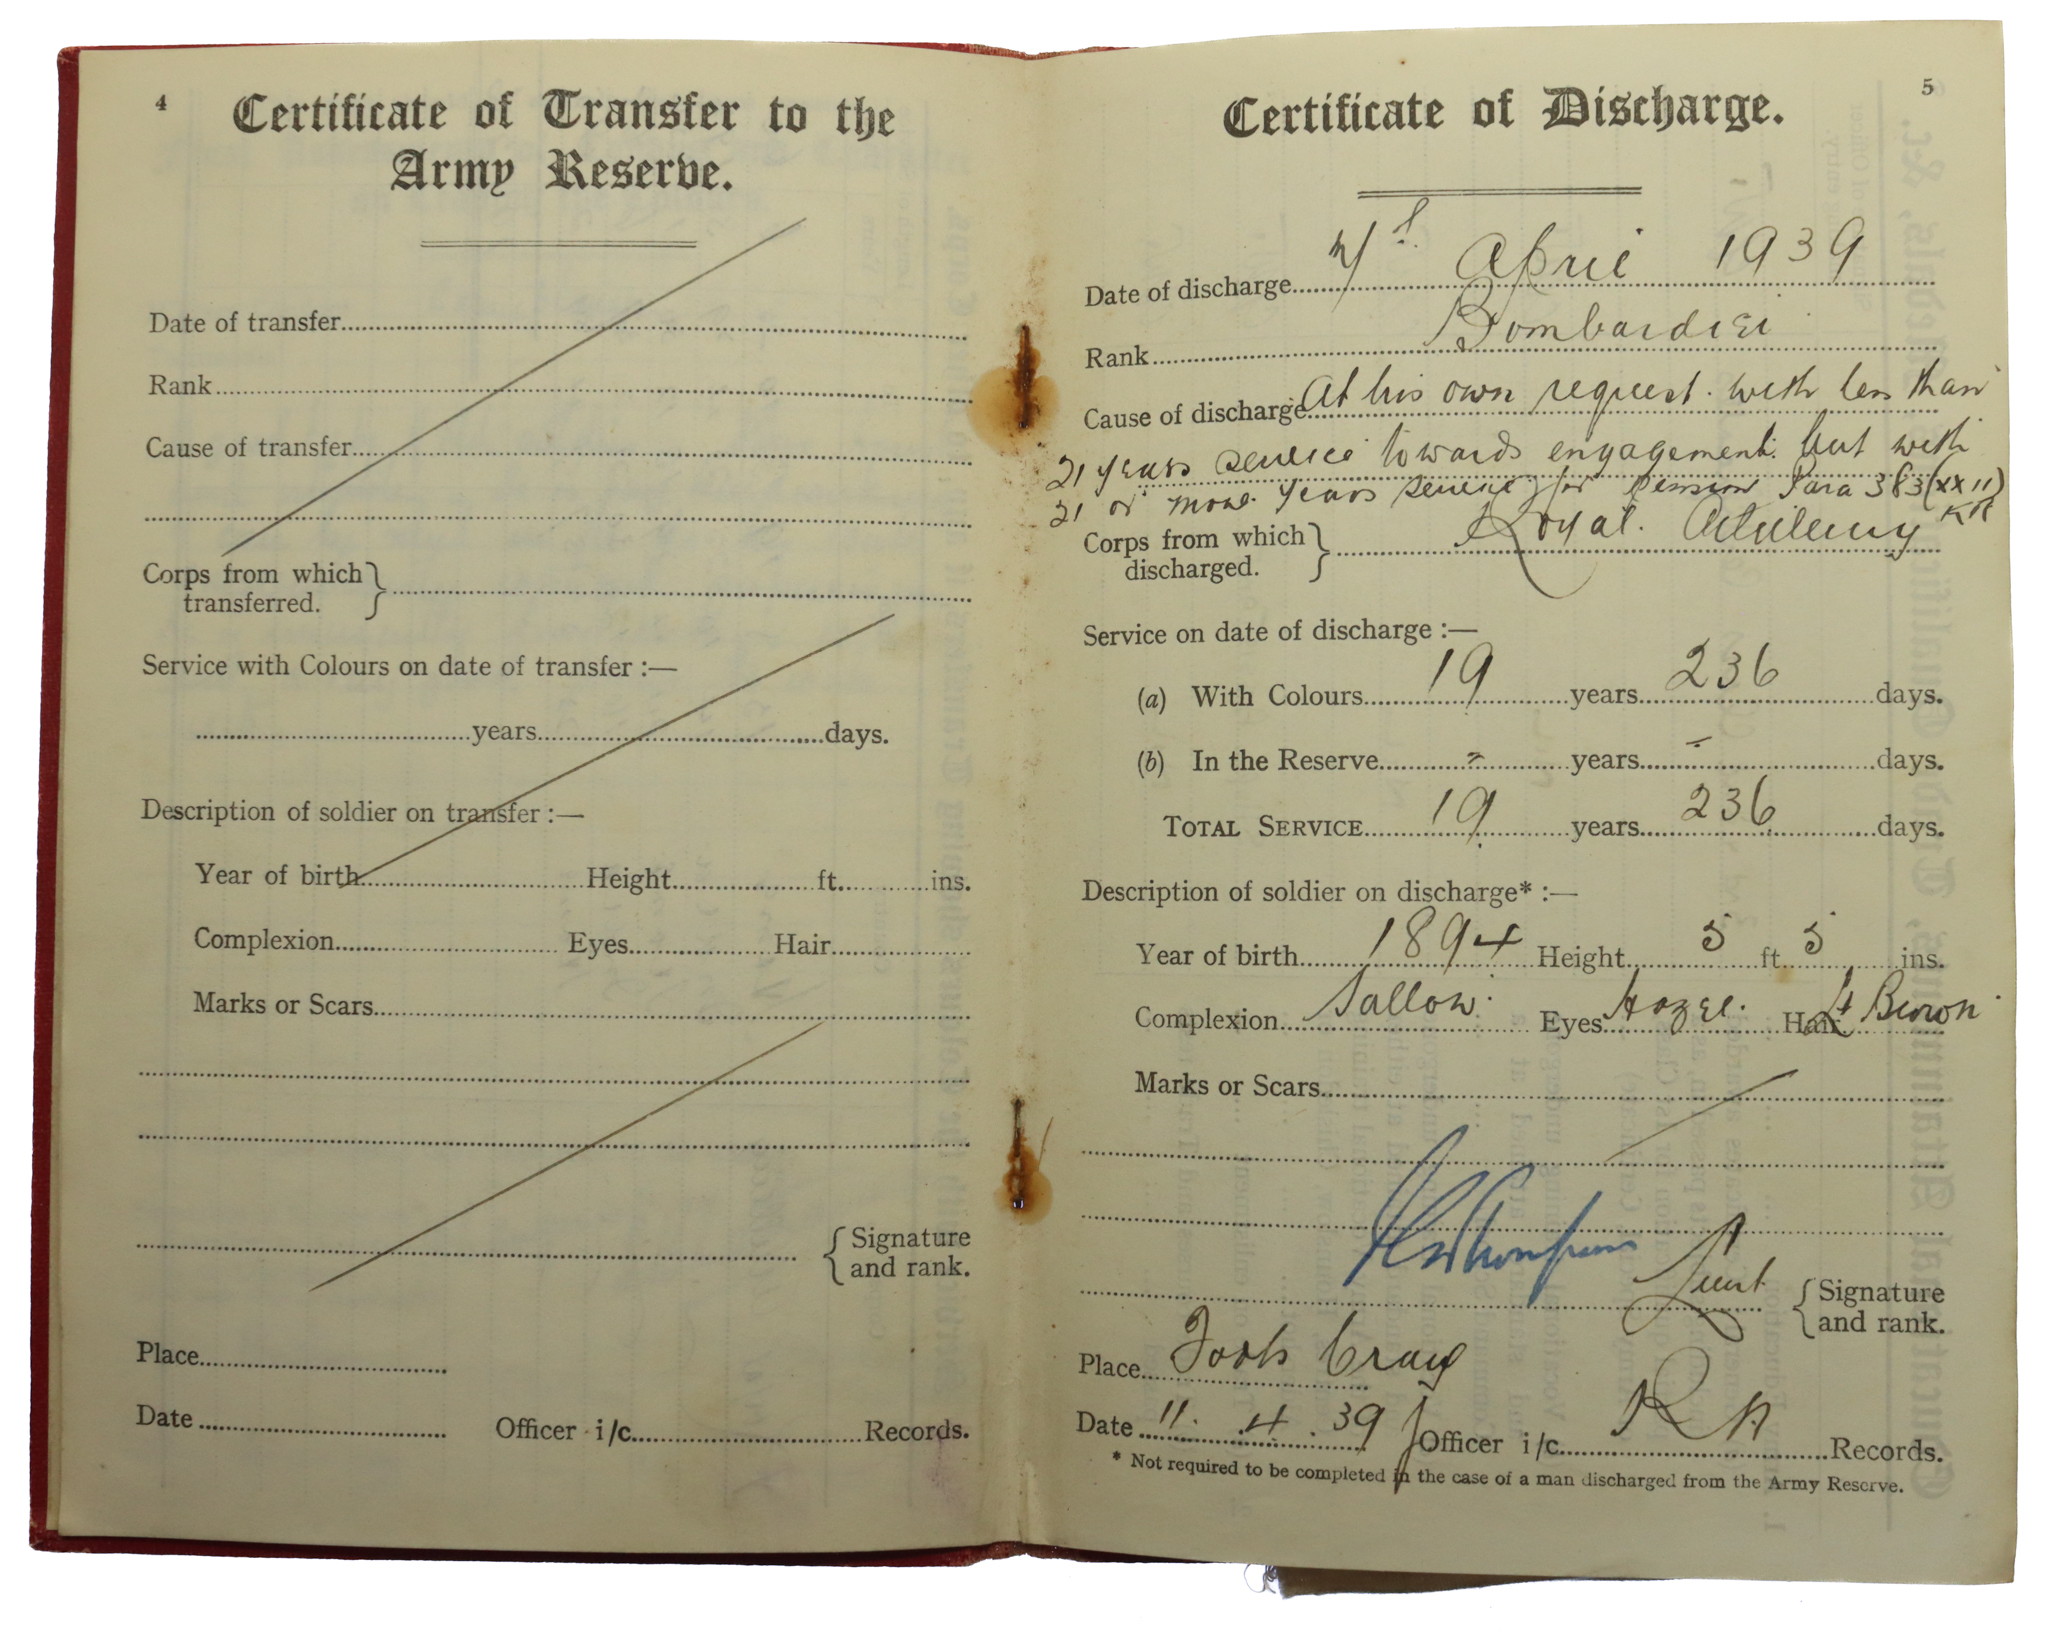 4
Certificate of Transfer to the
Army Reserve.
Date of transfer
Rank
Cause of transfer
Corps from which
transferred.
Service with Colours on date of transfer :—
years days.
Description of soldier on transfer :—
Year of birth Height ft. ins.
Complexion Eyes Hair
Marks or Scars
Signature
and rank.
Place
Date Officer i/c Records.
5
Certificate of Discharge.
Date of discharge April 1939
Rank Bombardier
Cause of discharge At his own request. with less than
21 years service towards engagement. but with
21 or more years service for pension Para 383 (XXII)
KR
Corps from which Royal. Artillery
discharged.
Service on date of discharge :—
(a) With Colours 19 years 236 days.
(b) In the Reserve - years - days.
TOTAL SERVICE 19 years 236 days.
Description of soldier on discharge* :—
Year of birth 1894 Height 5 ft. 5 ins.
Complexion Sallow. Eyes Hazel. Hair Lt Brown
Marks or Scars
Thompson Lieut
Signature
and rank.
Place Foots Cray
Date 11. 4. 39 Officer i/c R A Records.
* Not required to be completed in the case of a man discharged from the Army Reserve.